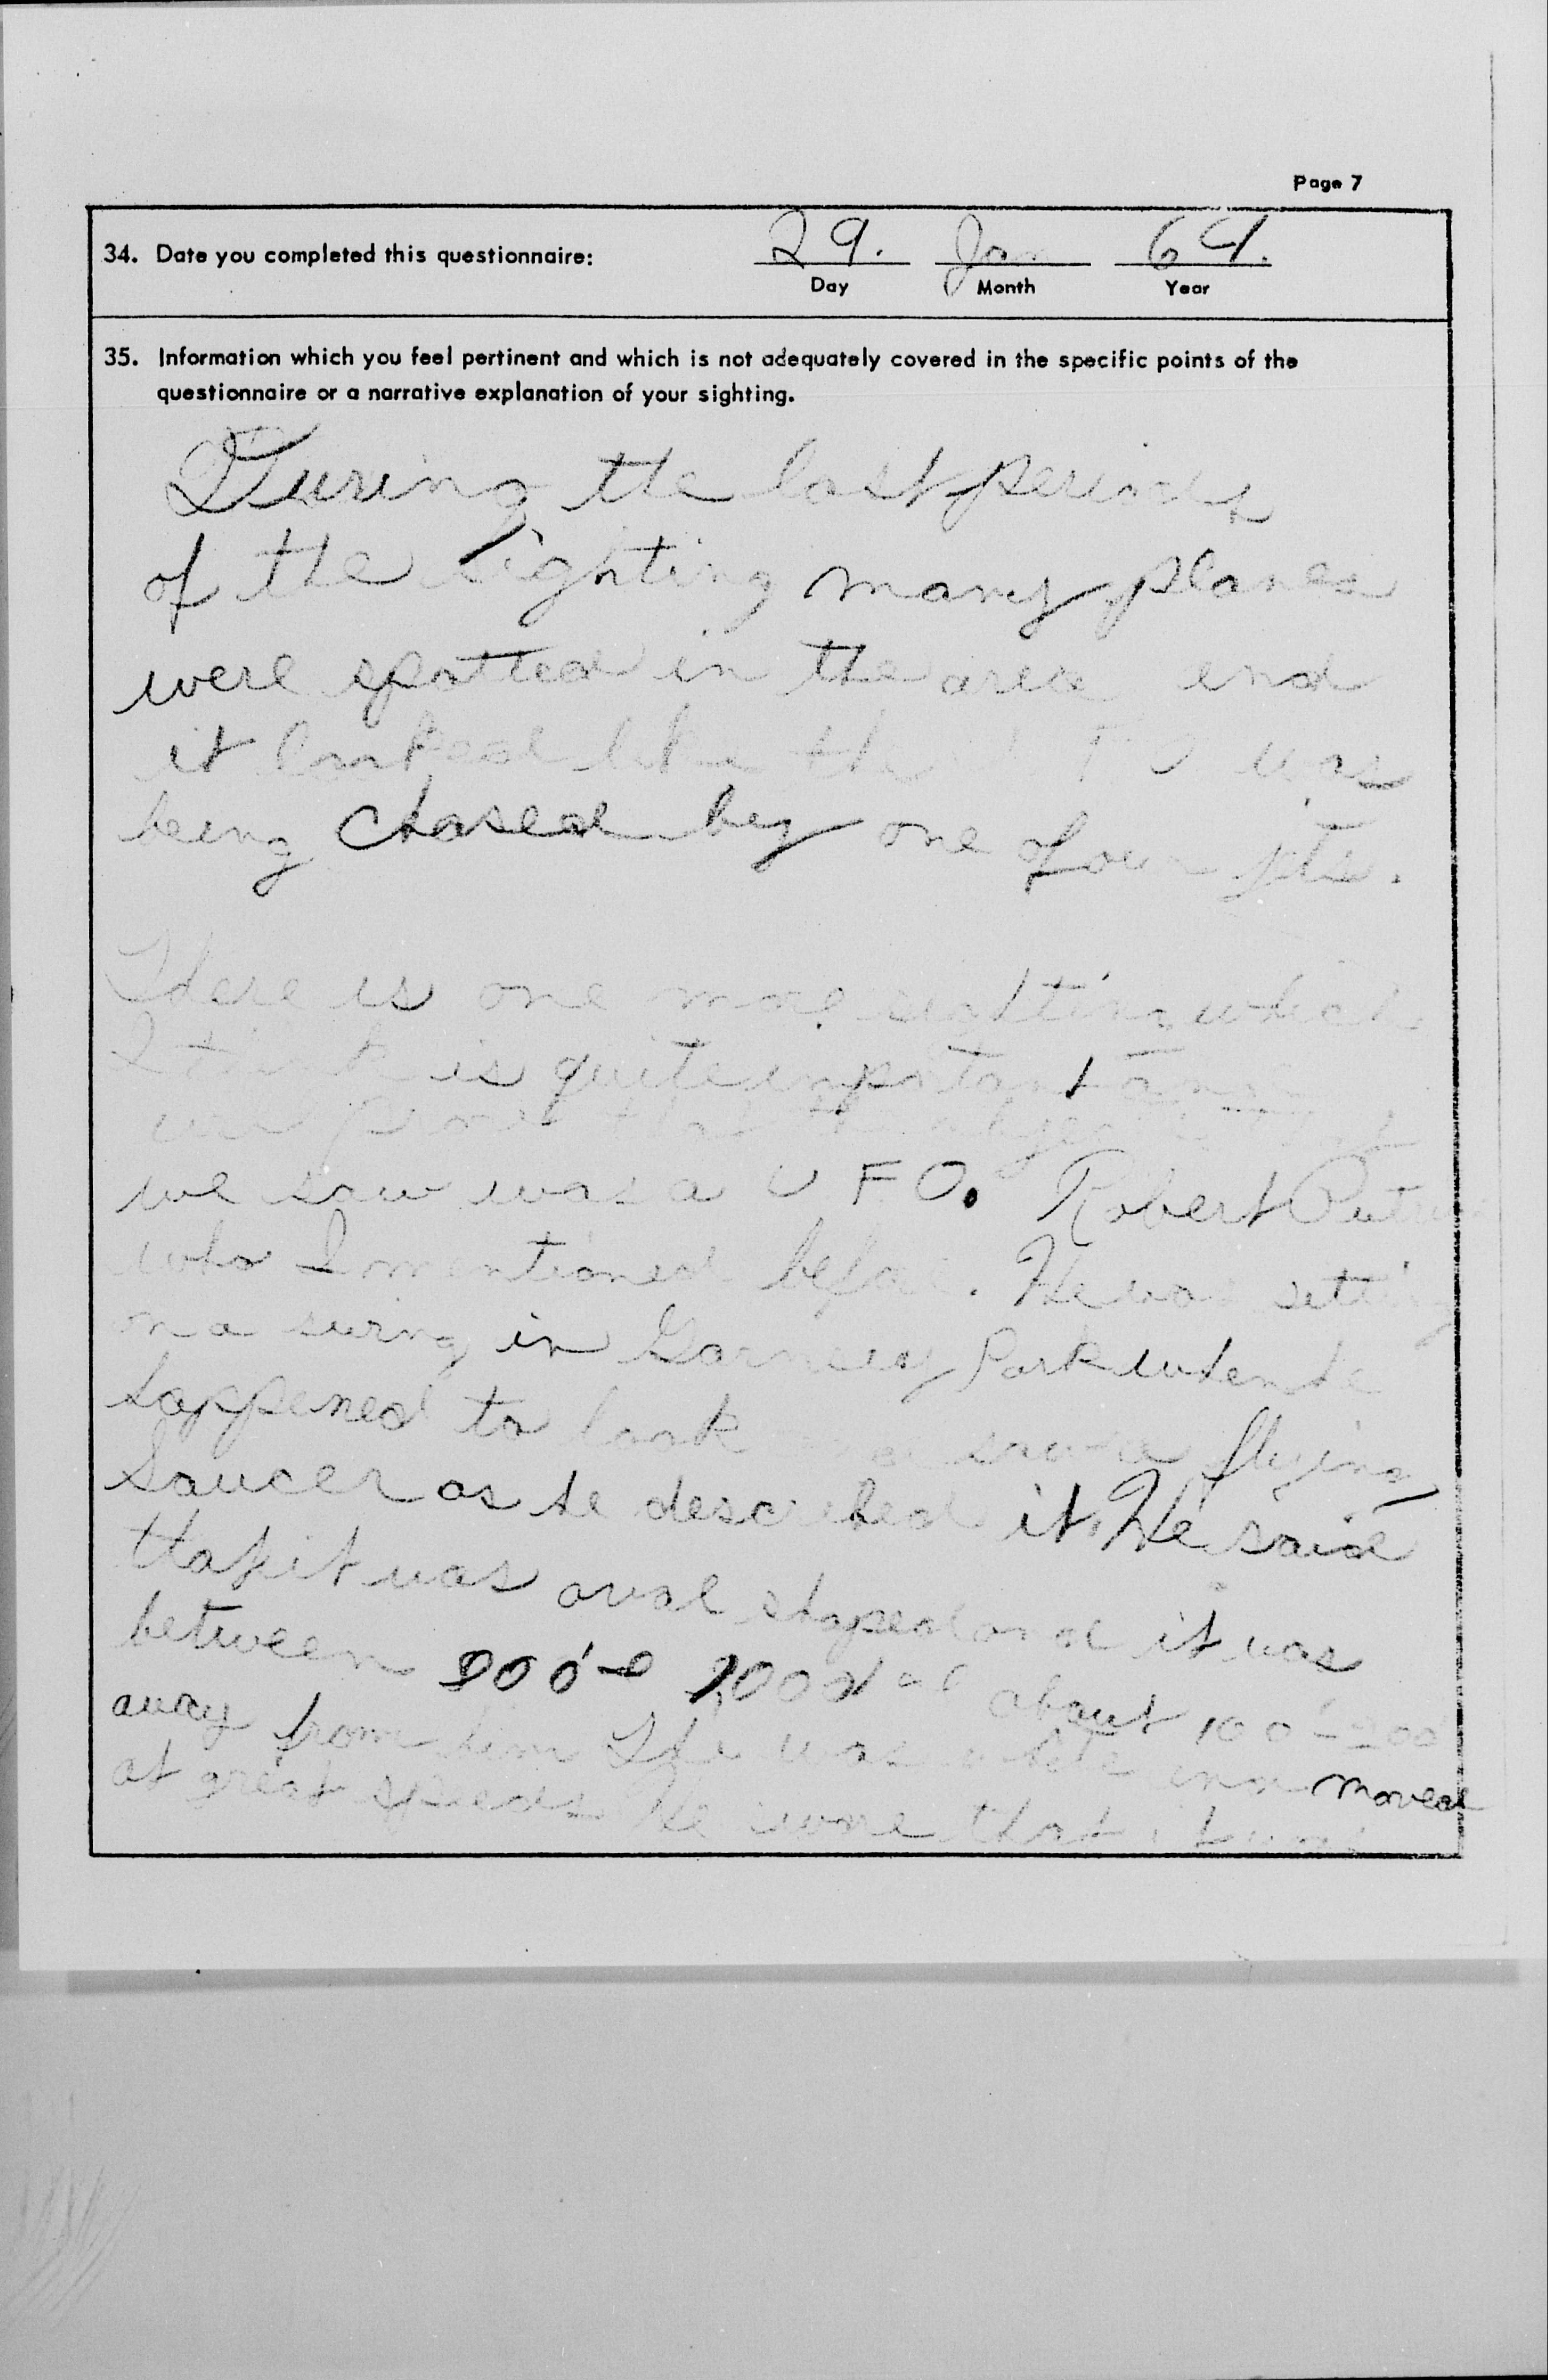 Page 7
34. Date you completed this questionnaire: 29. Jan 64.
Day Month Year
35. Information which you feel pertinent and which is not adequately covered in the specific points of the
questionnaire or a narrative explanation of your sighting.
During the last periods
of the sighting many planes
were spotted in the area and
it looked like the was
being chased by one of our jets.
There is one more sighting which
I think is quite inpotant and
can prove that the object that
we saw was a UFO. Robert
who I mentioned before. He was setting
on a swing in Park when he
happened to look and saw a flying
Saucer as he described it. He said
that it was oval shaped and it was
between about 100'-200'
away from him was white and moved
at great speeds. He swore that